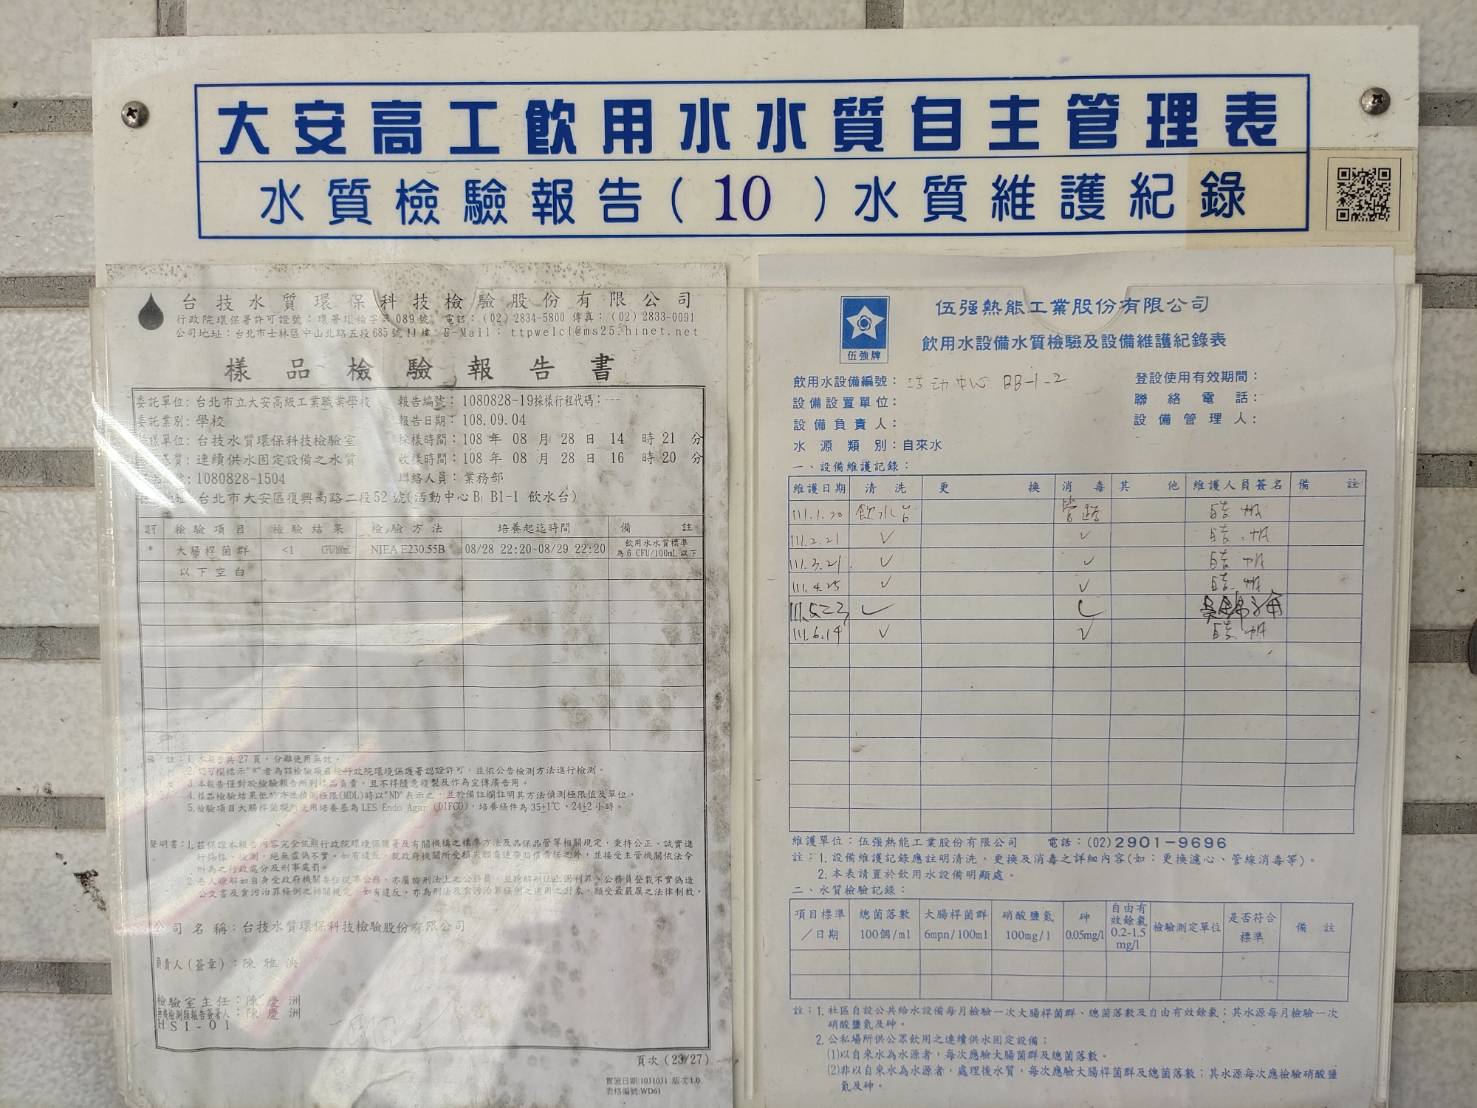 大安高工飲用水水質自主管理表
水質檢驗報告(10)水質維護紀錄
台技水質環保科技檢驗股份有限公司
行政院環保署許可證號：環署環檢字第089號 電話：(02) 2834-5800 傳真：(02) 2833-0091
公司地址：台北市士林區中山北路五段685號11樓 E-Mail：ttpwelcl@ms25.hinet.net
樣品檢驗報告書
委託單位：台北市立大安高級工業職業學校 報告編號：1080828-19採樣行程代碼：---
委託業別：學校 報告日期：108.09.04
採樣單位：台技水質環保科技檢驗室 採樣時間：108 年 08 月 28 日 14 時 21 分
連續供水固定設備之水質 收樣時間：108 年 08 月 28 日 16 時 20 分
1080828-1504 聯絡人員：業務部
台北市大安區復興南路二段52號(活動中心B B1-1 飲水台)
檢驗項目 檢驗結果 檢驗方法 培養起迄時間 備註
* 大腸桿菌群 <1 CFU/100mL NIEA E230.55B 08/28 22:20~08/29 22:20 飲用水水質標準為6 CFU/100mL以下
以下空白
備註：1.本報告共27頁，分離使用無效。
2.認可欄標示"*"者為該檢驗項目經行政院環境保護署認證許可，並依公告檢測方法進行檢測。
3.本報告僅對於檢驗報告所列樣品負責，且不得隨意複製及作為宣傳廣告用。
4.樣品檢驗結果低於方法偵測極限(MDL)時以"ND"表示之，並於備註欄註明其方法偵測極限值及單位。
5.檢驗項目大腸桿菌群所使用培養基為LES Endo Agar (DIFCO)，培養條件為35±1℃，24±2小時。
聲明書：1.茲保證本報告內容完全依照行政院環境保護署及有關機構之標準方法及品保品管等相關規定，秉持公正、誠實進
行採樣、檢測，絕無虛偽不實，如有違反，
公司名稱：台技水質環保科技檢驗股份有限公司
負責人(簽章)：陳雅
檢驗室主任：陳慶洲
陳慶洲
HSI-01
頁次 (23/27)
實施日期:1031031 版次1.0
表格編號:WD61
伍強牌
伍強熱能工業股份有限公司
飲用水設備水質檢驗及設備維護紀錄表
飲用水設備編號：活动中心 BB-1-2 登設使用有效期間：
設備設置單位： 聯絡電話：
設備負責人： 設備管理人：
水源類別：自來水
一、設備維護記錄：
維護日期 清洗 更換 消毒 其他 維護人員簽名 備註
111.1.20 飲水台 管路
111.2.21 ✓ ✓
111.3.21 ✓ ✓
111.4.25 ✓ ✓
111.5.23 ✓ ✓
111.6.14 ✓ ✓
維護單位：伍強熱能工業股份有限公司 電話：(02)2901-9696
註：1.設備維護記錄應註明清洗、更換及消毒之詳細內容(如：更換濾心、管線消毒等)。
2.本表請置於飲用水設備明顯處。
二、水質檢驗記錄：
項目標準／日期 總菌落數 100個/ml 大腸桿菌群 6mpn/100ml 硝酸鹽氮 100mg/l 砷 0.05mg/l 自由有效餘氯 0.2-1.5 mg/l 檢驗測定單位 是否符合標準 備註
註：1.社區自設公共給水設備每月檢驗一次大腸桿菌群、總菌落數及自由有效餘氯；其水源每月檢驗一次
硝酸鹽氮及砷。
2.公私場所供公眾飲用之連續供水固定設備：
(1)以自來水為水源者，每次應驗大腸菌群及總菌落數。
(2)非以自來水為水源者，處理後水質，每次應驗大腸桿菌群及總菌落數；其水源每次應檢驗硝酸鹽
氮及砷。